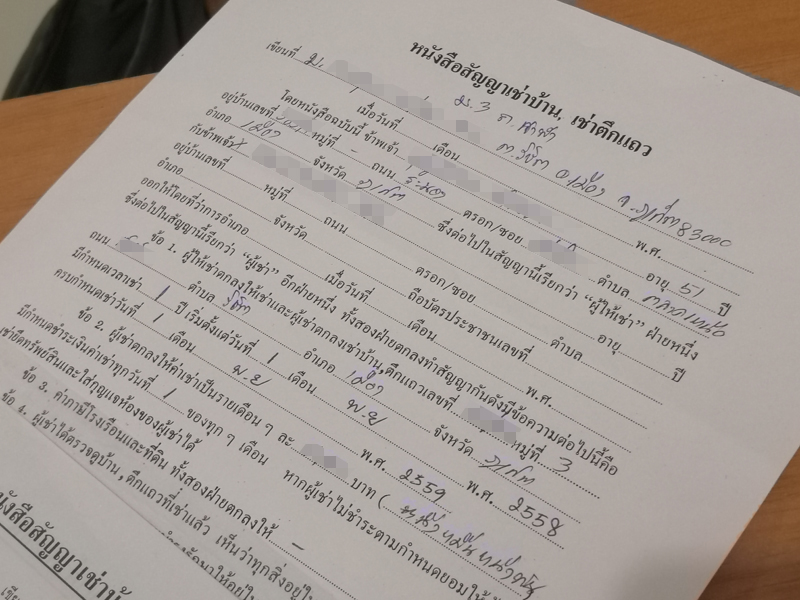 หนังสือสัญญาเช่าบ้าน, เช่าตึกแถว
เขียนที่ ม.
ม.3 ต.
ต.วิชิต อ.เมือง จ.ภูเก็ต 83000
1 เมื่อวันที่ เดือน พ.ศ.
โดยหนังสือฉบับนี้ ข้าพเจ้า อายุ 51 ปี
อยู่บ้านเลขที่ หมู่ที่ - ถนน ระนอง ตรอก/ซอย ตำบล ตลาดเหนือ
อำเภอ เมือง จังหวัด ภูเก็ต ซึ่งต่อไปในสัญญานี้เรียกว่า "ผู้ให้เช่า" ฝ่ายหนึ่ง
กับข้าพเจ้า อายุ ปี
อยู่บ้านเลขที่ หมู่ที่ ถนน ตรอก/ซอย ตำบล
อำเภอ จังหวัด ถือบัตรประชาชนเลขที่
ออกให้โดยที่ว่าการอำเภอ เมื่อวันที่ เดือน พ.ศ.
ซึ่งต่อไปในสัญญานี้เรียกว่า "ผู้เช่า" อีกฝ่ายหนึ่ง ทั้งสองฝ่ายตกลงทำสัญญากันดังมีข้อความต่อไปนี้คือ
ข้อ 1. ผู้ให้เช่าตกลงให้เช่าและผู้เช่าตกลงเช่าบ้าน,ตึกแถวเลขที่ หมู่ที่ 3
ถนน ตำบล วิชิต อำเภอ เมือง จังหวัด ภูเก็ต
มีกำหนดเวลาเช่า 1 ปี เริ่มตั้งแต่วันที่ 1 เดือน พ.ย พ.ศ. 2558
ครบกำหนดเช่าวันที่ 1 เดือน พ.ย พ.ศ. 2559
ข้อ 2. ผู้เช่าตกลงให้ค่าเช่าเป็นรายเดือน ๆ ละ บาท (
มีกำหนดชำระเงินค่าเช่าทุกวันที่ 1 ของทุก ๆ เดือน หากผู้เช่าไม่ชำระตามกำหนดยอมให้
เข้ายึดทรัพย์สินและใส่กุญแจห้องของผู้เช่าได้
ข้อ 3. ค่าภาษีโรงเรือนและที่ดิน ทั้งสองฝ่ายตกลงให้ -
ข้อ 4. ผู้เช่าได้ตรวจดูบ้าน,ตึกแถวที่เช่าแล้ว เห็นว่าทุกสิ่งอยู่ใ
นังสือสัญญาเช่าบ้